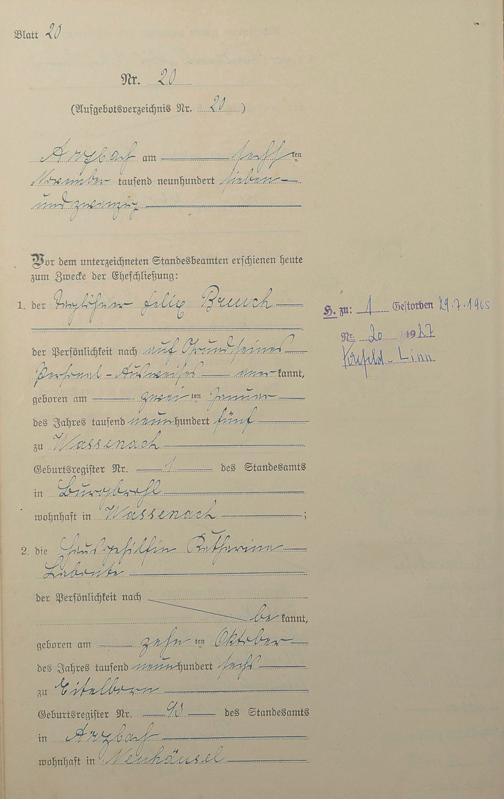 Blatt 20
Nr. 20
(Aufgebotsverzeichnis Nr. 20 )
Arzbach am sechsten
November tausend neunhundert sieben
und zwanzig
Vor dem unterzeichneten Standesbeamten erschienen heute
zum Zwecke der Eheschließung:
1. der Taglöhner Felix Breuch
der Persönlichkeit nach auf Grund seines
Personal-Ausweises anerkannt,
geboren am zweiten Januar
des Jahres tausend neunhundert fünf
zu Wassenach
Geburtsregister Nr. 1 des Standesamts
in Burgbrohl
wohnhaft in Wassenach ;
2. die Hausgehilfin Katharina
Labonte
der Persönlichkeit nach
bekannt,
geboren am zehnten Oktober
des Jahres tausend neunhundert sechs
zu Eitelborn
Geburtsregister Nr. des Standesamts
in Arzbach
wohnhaft in Neuhäusel
H. zu: 1 Gestorben 29.7.1965
Nr. 20 1927
Krefeld-Linn